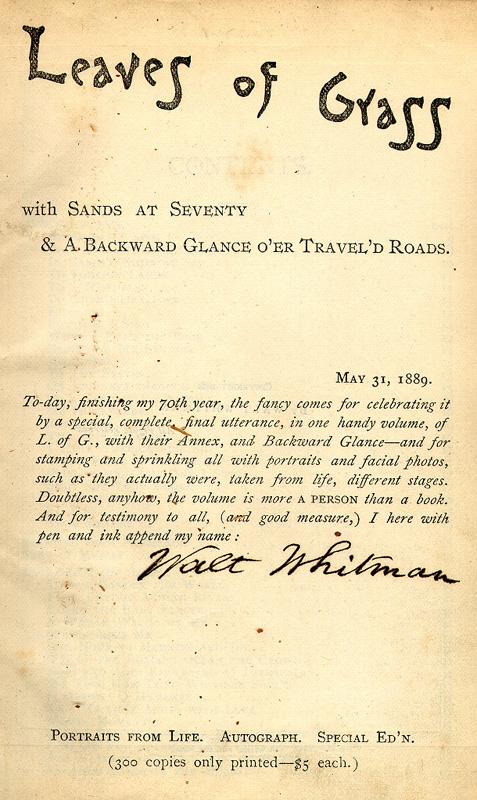 Leaves of Grass
with SANDS AT SEVENTY
& A BACKWARD GLANCE O'ER TRAVEL'D ROADS.
MAY 31, 1889.
To-day, finishing my 70th year, the fancy comes for celebrating it
by a special, complete, final utterance, in one handy volume, of
L. of G., with their Annex, and Backward Glance—and for
stamping and sprinkling all with portraits and facial photos,
such as they actually were, taken from life, different stages.
Doubtless, anyhow, the volume is more A PERSON than a book.
And for testimony to all, (and good measure,) I here with
pen and ink append my name :
Walt Whitman
PORTRAITS FROM LIFE. AUTOGRAPH. SPECIAL ED'N.
(300 copies only printed—$5 each.)